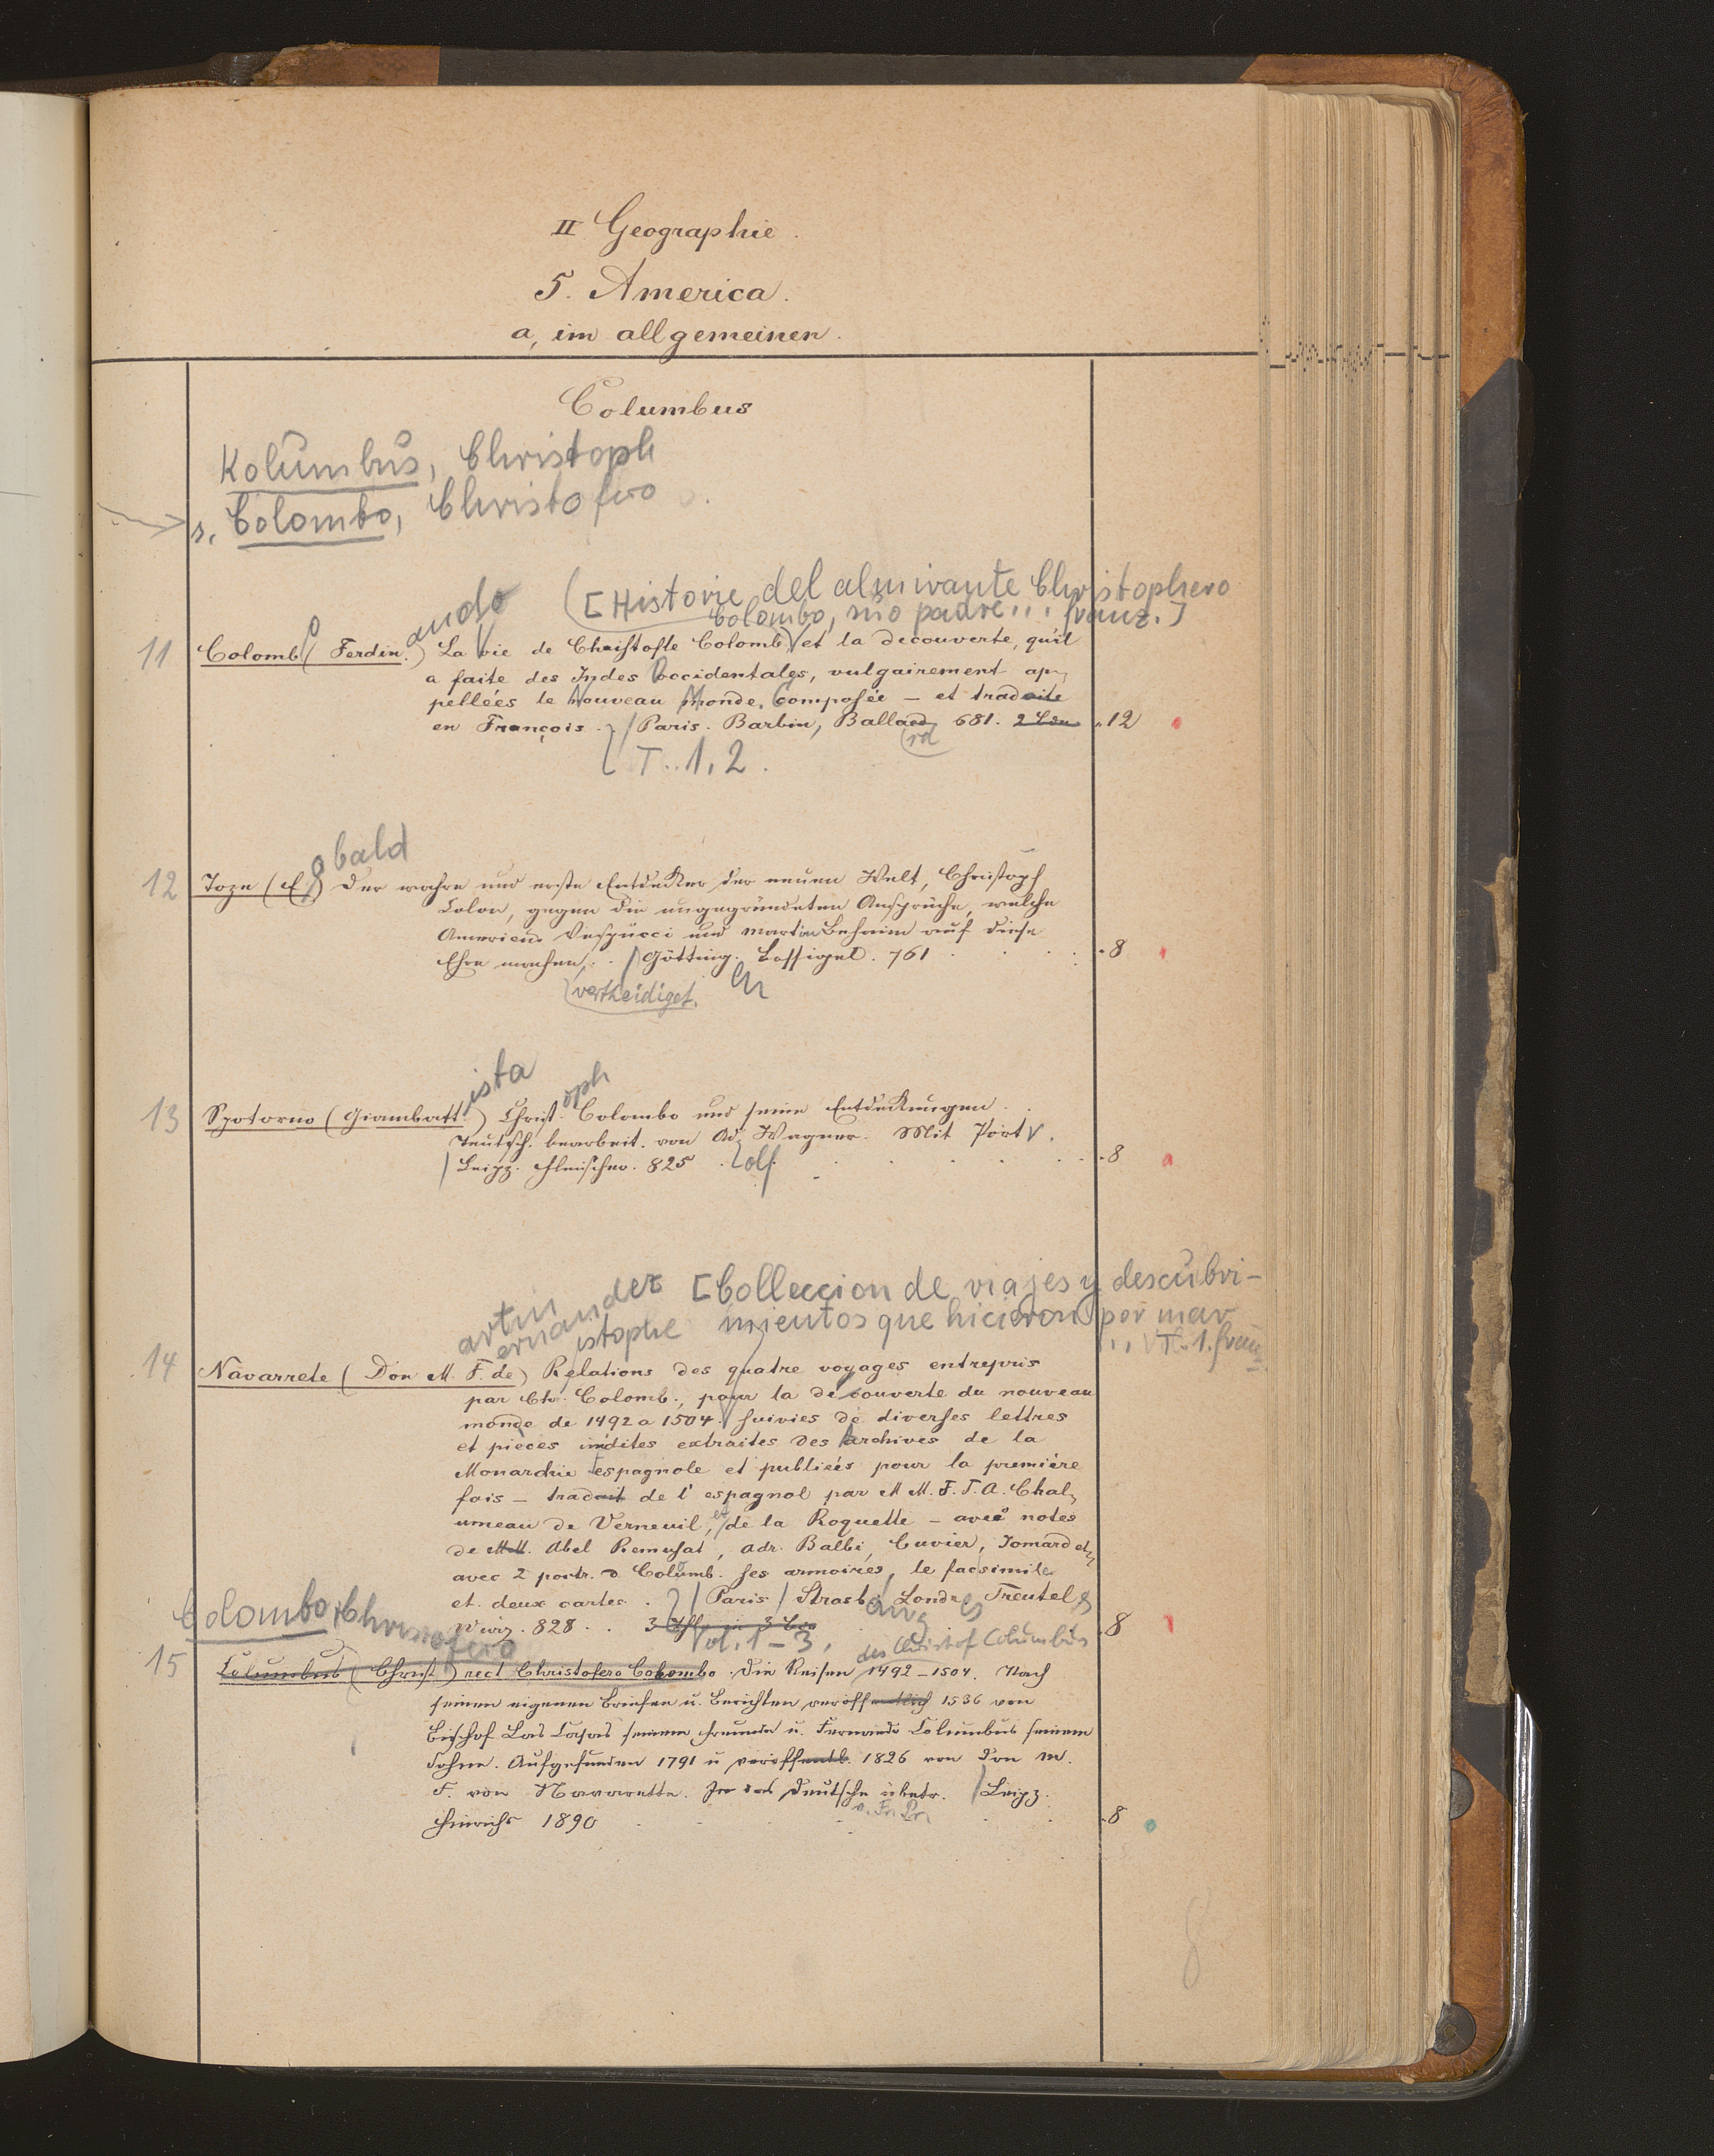 II Geographie.
5. America.
a, im allgemeinen.
Columbus
Kolumbus, Christoph
s. Colombo, Christofero
[Historie del almirante Christophero
Colombo, suo padre... franz.]
ando
11 Colombo (Ferdin.) La vie de Christofle Colomb et la decouverte, qu'il
a faite des Indes occidentales, vulgairement ap-
pellées le Nouveau Monde. Composée – et traduite
en François. Paris. Barbin, Ballard 681. 2 Bde .12
rd
T. 1, 2.
obald
12 Toze (E.) Der wahre und erste Entdecker der neuen Welt, Christoph
Colon, gegen die ungegründeten Ansprüche, welche
Americus Vespucci und Martin Behaim auf diese
Ehre machen. Götting. Bossigel. 761 .8
vertheidiget.
ista oph
13 Spotorno (Giambatt.) Christ. Colombo und seine Entdeckungen.
Teutsch. bearbeit. von Ad. Wagner. Mit Portr.
Leipz. Fleischer. 825 .8
olf
[Colleccion de viajes y descubri-
mientos que hicieron por mar
... T. 1. franz.
artin ernandez istophe
14 Navarrete (Don M. F. de) Relations des quatre voyages entrepris
par Chr. Colomb., pour la découverte du nouveau
monde de 1492 a 1504. suivies de diverses lettres
et pièces inédites extraites des archives de la
Monarchie espagnole et publiées pour la première
fois – traduit de l'espagnol par M M. F. T. A. Chal-
umeau de Verneuil, et de la Roquette – avec notes
de MM. Abel Remusat, Adr. Balbi, Cuvier, Jomard etc
avec 2 portr. d. Colomb. ses armoires, le facsimile
et deux cartes. Paris Strasb. Londr. Treutel &
Würz. 828 .8
Vol. 1–3.
Colombo, Christofero
des Christof Columbus
15 Columbus (Christ.) rect Christofero Colombo. Die Reisen 1492–1504. Nach
seinen eigenen Briefen u. Berichten veröffentlich 1536 von
Bischof Las Casas seinem Freunde u. Fernando Columbus seinem
Sohne. Aufgefunden 1791 u veröffentl. 1826 von Don M.
F. von Navarrette. In das Deutsche übetr. Leipz.
v. Fr. Pr.
Hinrichs 1890 .8
8